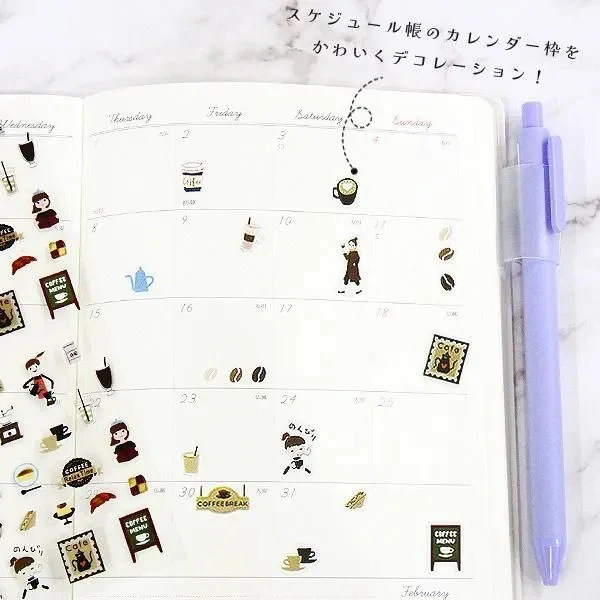 スケジュール帳のカレンダー枠を
かわいくデコレーション！
Wednesday Thursday Friday Saturday Sunday
1 2 3 4
Coffee
8 9 10 11
COFFEE
MENU
15 16 17 18
Cafe
22 23 24 25
のんびり
COFFEE
Break Time
29 30 31
COFFEE BREAK
COFFEE
MENU
COFFEE
MENU
Cafe
のんびり
February